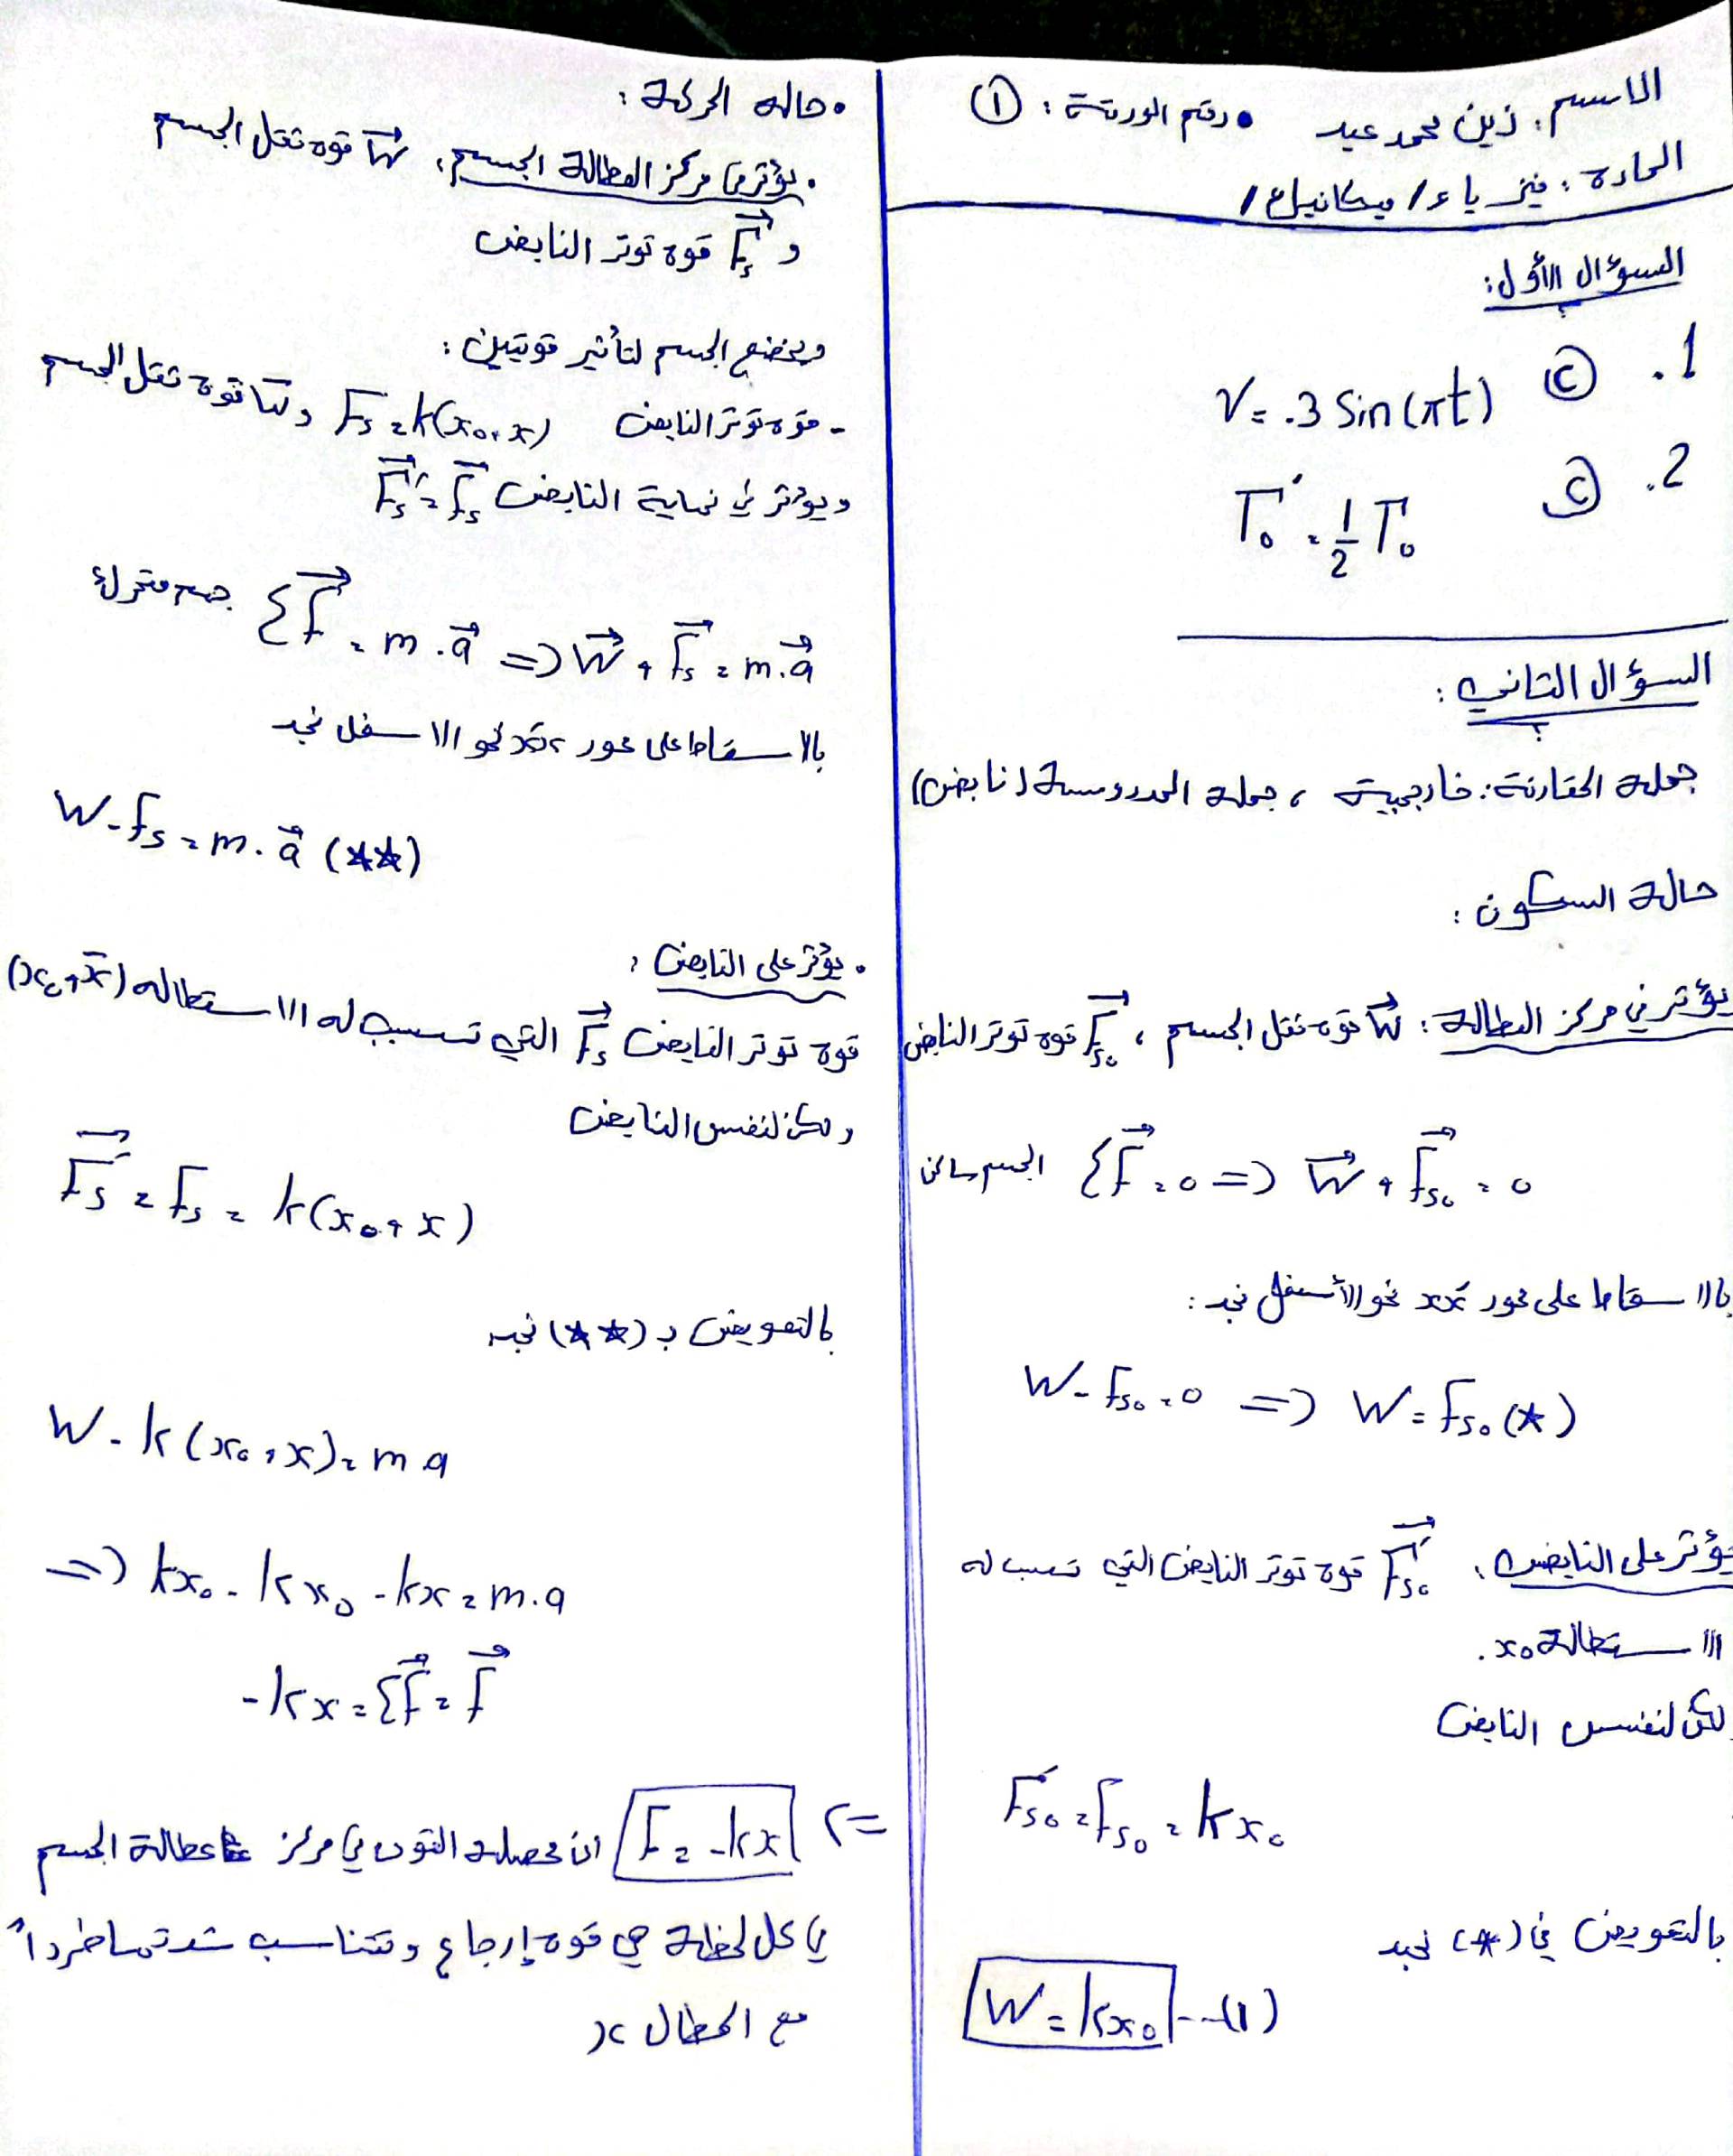 الاسم: زين محمد عيد • رقم الورقة: ①
المادة: فيزياء / ميكانيك /
السؤال الأول:
1. Ⓒ V = .3 Sin(πt)
2. Ⓒ T₀' = 1/2 T₀
السؤال الثاني:
جملة المقارنة: خارجية ، جملة المدروسة (نابض)
حالة السكون:
يؤثر في مركز العطالة: W⃗ قوة ثقل الجسم ، F⃗s₀ قوة توتر النابض
الجسم ساكن Σf⃗ = 0 => W⃗ + F⃗s₀ = 0
بالاسقاط على محور x'x نحو الأسفل نجد:
W - Fs₀ = 0 => W = Fs₀ (*)
يؤثر على النابض: F⃗'s₀ قوة توتر النابض التي تسبب له
الاستطالة x₀.
لكن لنفس النابض
F's₀ = Fs₀ = kx₀
بالتعويض في (*) نجد
W = kx₀ --(1)
• حالة الحركة:
• يؤثر في مركز العطالة الجسم: W⃗ قوة ثقل الجسم
و F⃗s قوة توتر النابض
ويخضع الجسم لتأثير قوتين:
- قوة توتر النابض Fs = k(x₀+x) و W⃗ قوة ثقل الجسم
ويؤثر في نهاية النابض F⃗s' = F⃗s
Σf⃗ = m.a⃗ => W⃗ + F⃗s = m.a⃗ جسم متحرك
بالاسقاط على محور x'x نحو الاسفل نجد
W - fs = m.a⃗ (**)
• يؤثر على النابض:
قوة توتر النابض F⃗s التي تسبب له الاستطالة (x₀+x̄)
ولكن لنفس النابض
F⃗s' = Fs = k(x₀+x)
بالتعويض ب (**) نجد
W - k(x₀+x) = m a
=> kx₀ - kx₀ - kx = m.a
-kx = Σf⃗ = f⃗
=> F = -kx ان محصلة القوى في مركز عطالة الجسم
في كل لحظة هي قوة إرجاع وتتناسب شدتها طرداً
مع المطال x